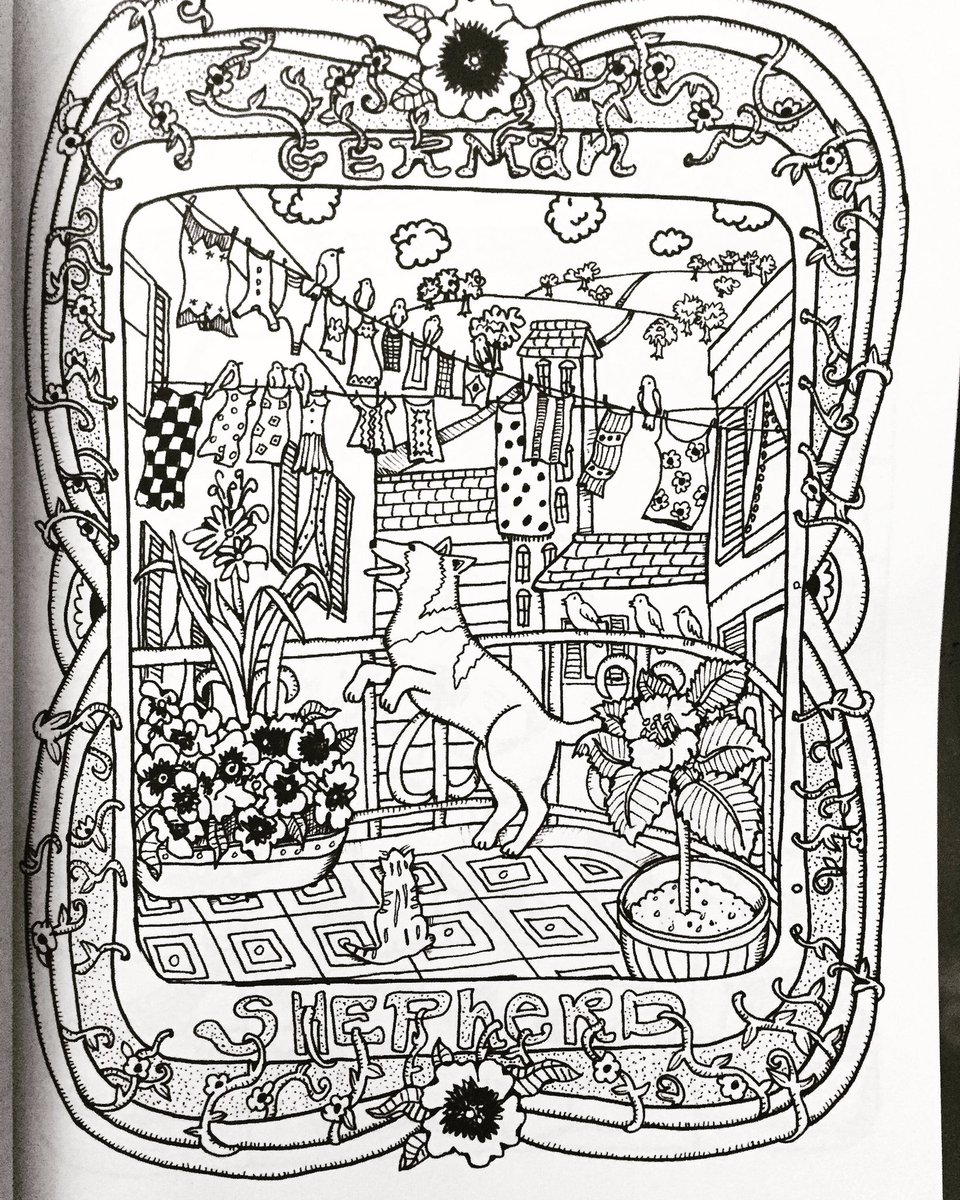 GERMan
SHEPhERD